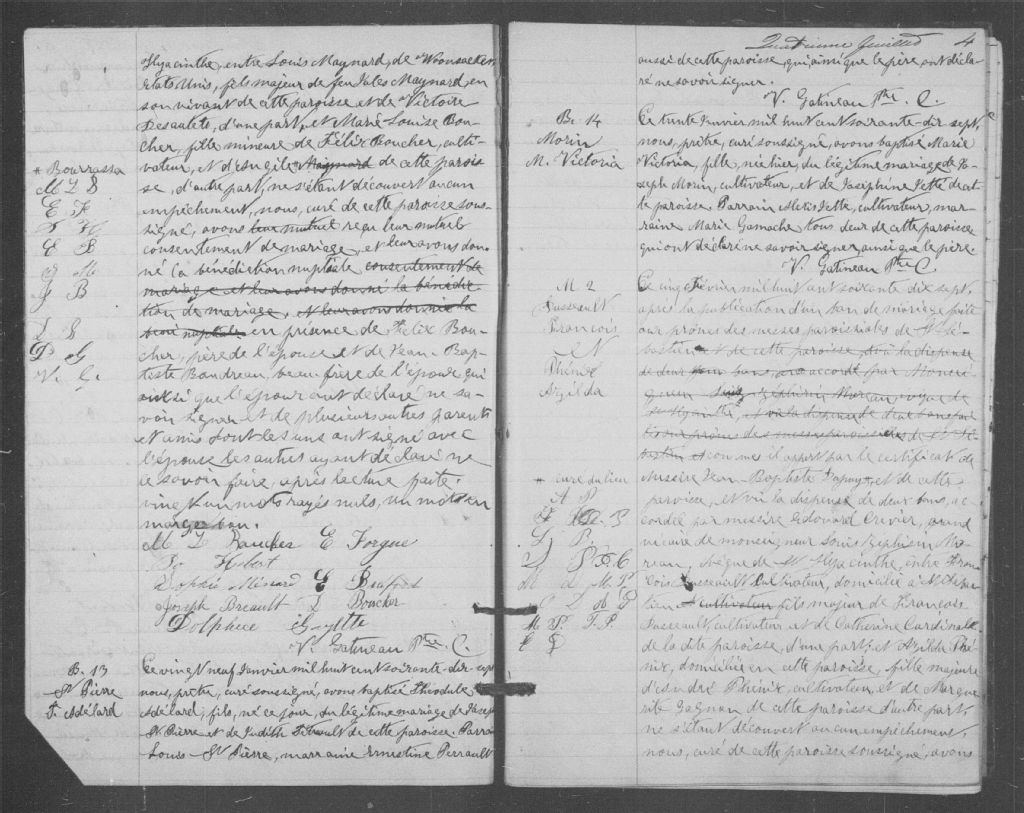 Hyacinthe, entre Louis Maynard, de Woonsocket
Etats Unis, fils majeur de feu Jules Maynard, en
son vivant de cette paroisse et de Victoire
Desautels, d'une part, et Marie Louise Bou-
cher, fille mineure de Félix Boucher, culti-
vateur, et d'Angile Maynard de cette parois
* Bourrassa
se, d'autre part, ne s'étant découvert aucun
M L B
empêchement, nous, curé de cette paroisse sous-
E F
signé, avons leur mutuel reçu leur mutuel
P H
consentement de mariage et leur avons don-
E B
né la bénédiction nuptiale consentement de
J M
mariage et leur avons donné la bénédic-
J B
tion de mariage, et leur avons donné la
L B
béné nuptiale en présence de Félix Bou-
D G
cher, père de l'épouse et de Jean-Bap-
V. G.
tiste Baudreau, beau frère de l'époux qui
ainsi que l'époux ont déclaré ne sa-
voir signer et de plusieurs autres parents
et amis dont les uns ont signé avec
l'épouse les autres ayant déclaré ne
le savoir faire, après lecture faite.
vingt un mots rayés nuls, un mot en
marge bon.
M L Boucher E Forgue
P. Hébert
Sophie Ménard E Beaufret
Joseph Breault L Boucher
Dolphice Guyette
V. Gatineau Ptre. C.
B. 13
St Pierre
T. Adélard
Ce vingt neuf Janvier mil huit cent soixante-dix-sept
nous, prêtre, curé soussigné, avons baptisé Théodule
Adélard, fils, né ce jour, du légitime mariage de Joseph
St Pierre et de Judith Tétrault de cette paroisse. Parrain
Louis St Pierre, marraine Ernestine Perrault
Quatrième feuillet 4
aussi de cette paroisse, qui ainsi que le père ont décla-
ré ne savoir signer.
V. Gatineau Ptre. C.
B. 14
Morin
M. Victoria
Ce trente Janvier mil huit cent soixante-dix-sept,
nous, prêtre, curé soussigné, avons baptisé Marie
Victoria, fille, née hier, du légitime mariage de Jo-
seph Morin, cultivateur, et de Joséphine Jetté de cet-
te paroisse Parrain Alexis Jetté, cultivateur, mar-
raine Marie Gamache tous deux de cette paroisse
qui ont déclaré ne savoir signer ainsi que le père.
V. Gatineau Ptre C.
M. 2
Passeault
François
et
Phénix
Azilda
Ce cinq Février mil huit cent soixante dix sept,
après la publication d'un ban de mariage faite
aux prônes des messes paroissiales de St Sé-
bastien et de cette paroisse, vû la dispense
de deux bans, accordé par Monsei-
gneur Louis Zéphirin Moreau
de St Hyacinthe,
bastien et comme il appert par le certificat de
* curé du lieu
Messire Jean Baptiste Dupuy* et de cette
A P
paroisse, et vû la dispense de deux bans, ac-
cordée par messire Edouard Crevier, grand
vicaire de monseigneur Louis Zéphirin Mo-
reau, évêque de St Hyacinthe, entre Fran-
çois Passeault cultivateur, domicilié à St Sébas-
tien et cultivateur fils majeur de François
M. P. F. P.
Passeault, cultivateur et de Catherine Cardinal
de la dite paroisse, d'une part; et Azilda Phé-
nix, domiciliée en cette paroisse, fille majeure
d'André Phénix, cultivateur, et de Margue-
rite Gagnon de cette paroisse d'autre part,
ne s'étant découvert aucun empêchement,
nous, curé de cette paroisse soussigné, avons